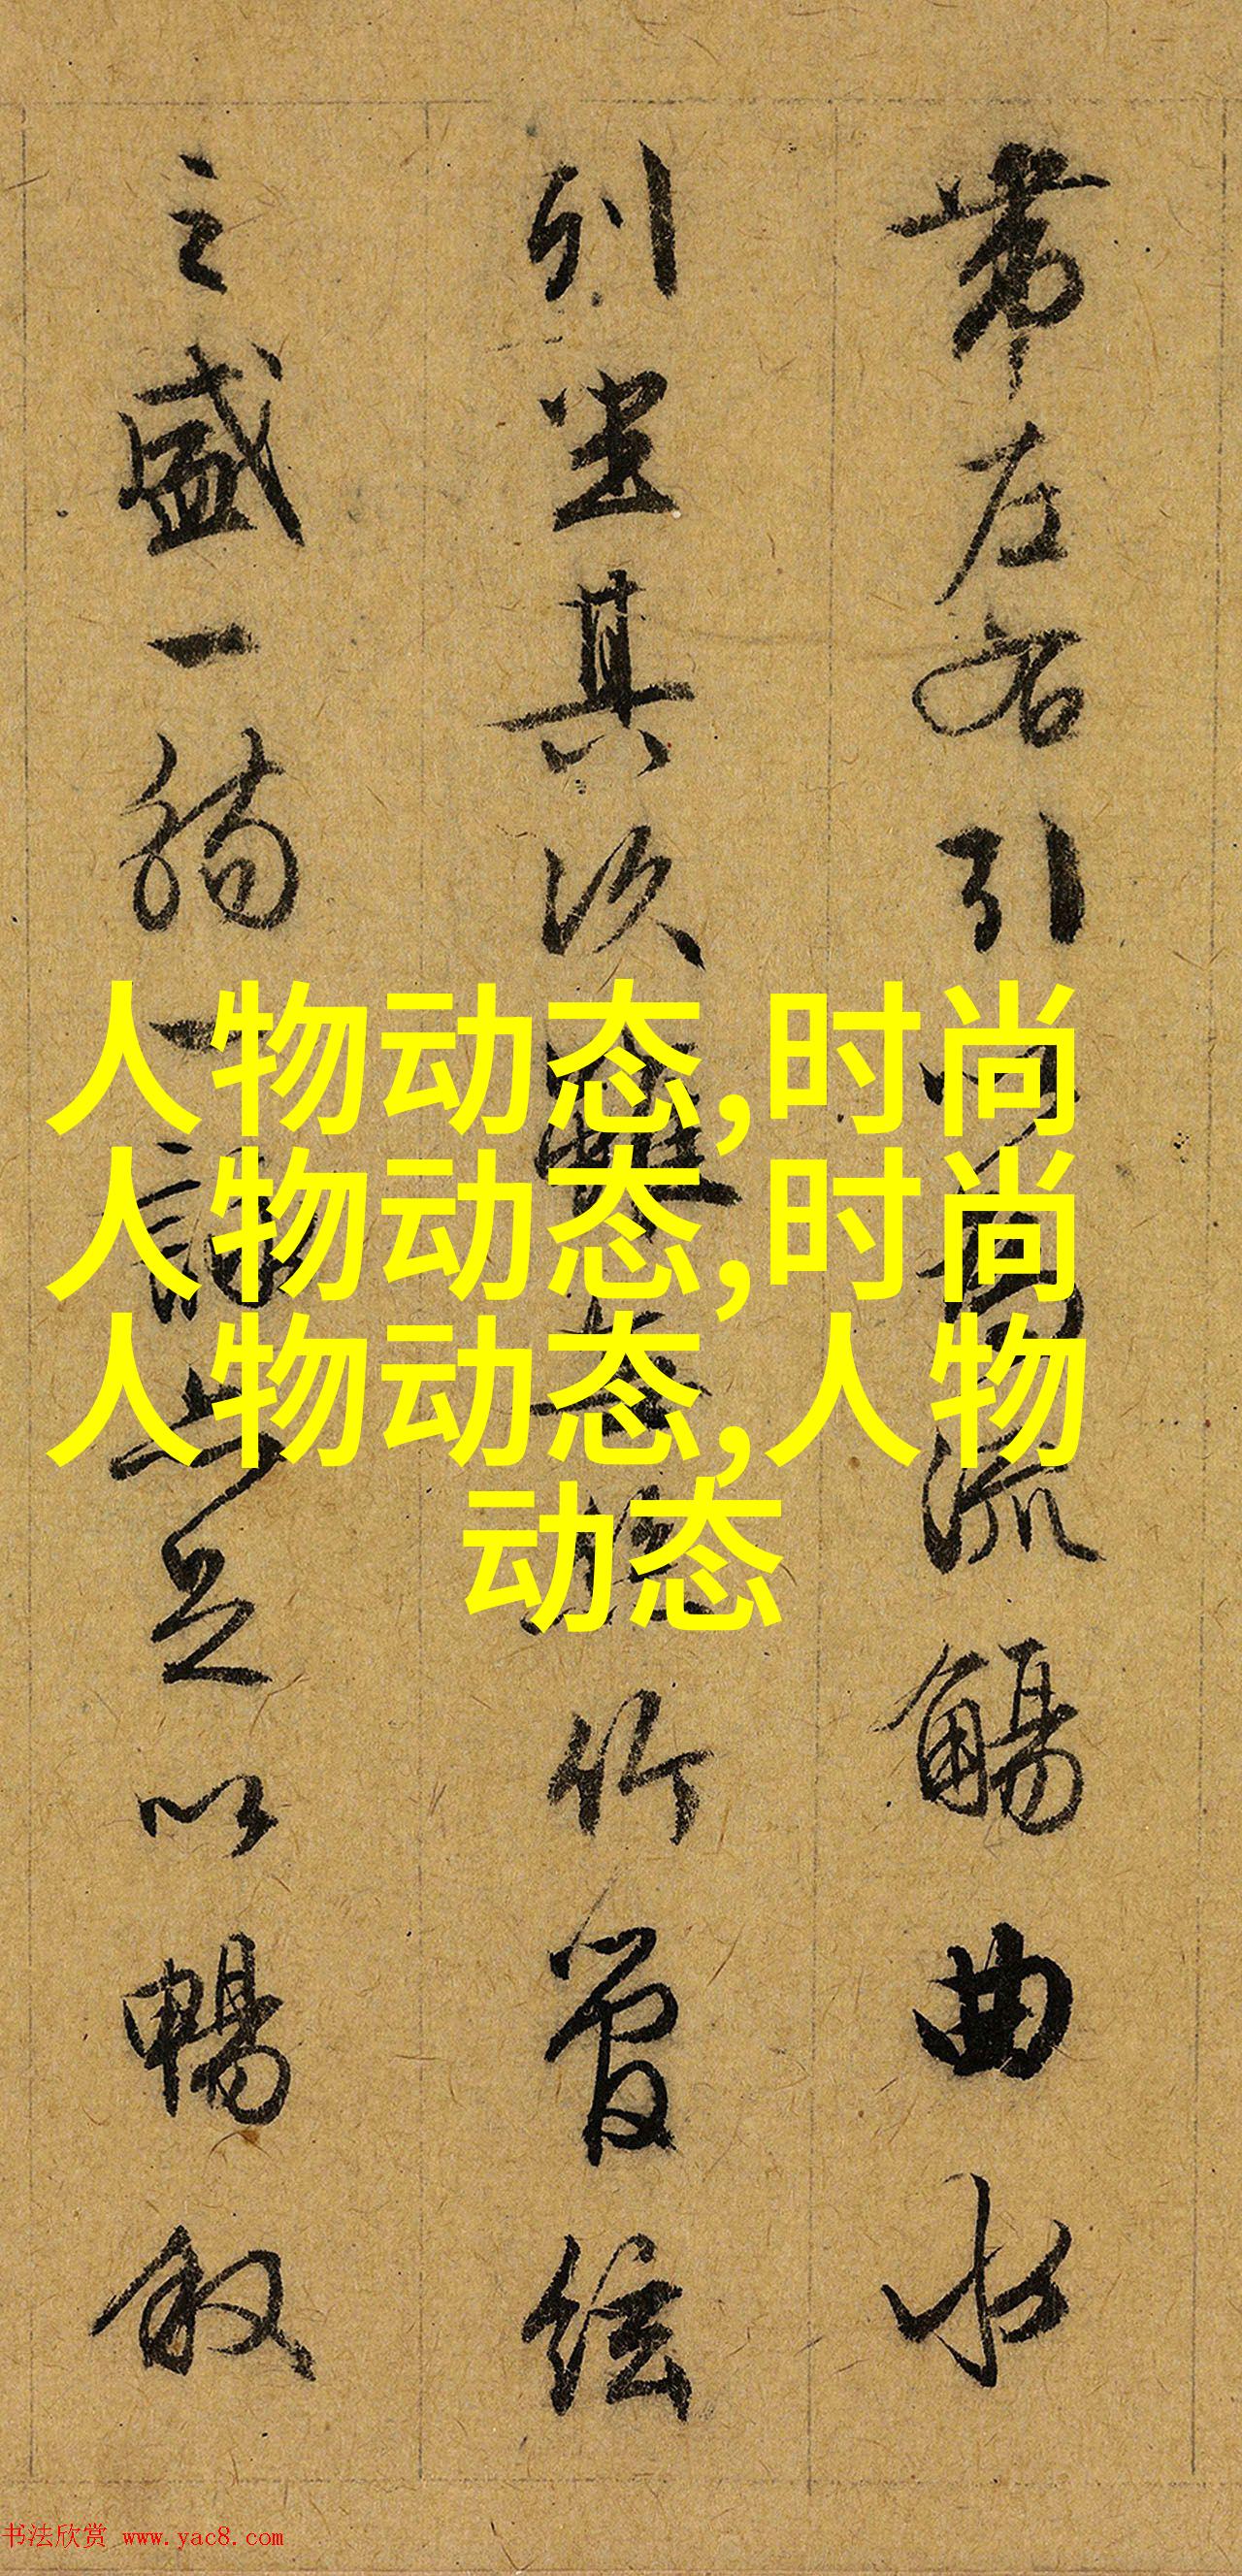 帶左右引以為流觴曲水
列坐其次雖無絲竹管絃
之盛一觴一詠亦足以暢敘
人物动态,时尚
人物动态,时尚
人物动态,人物
动态
书法欣赏 www.yac8.com